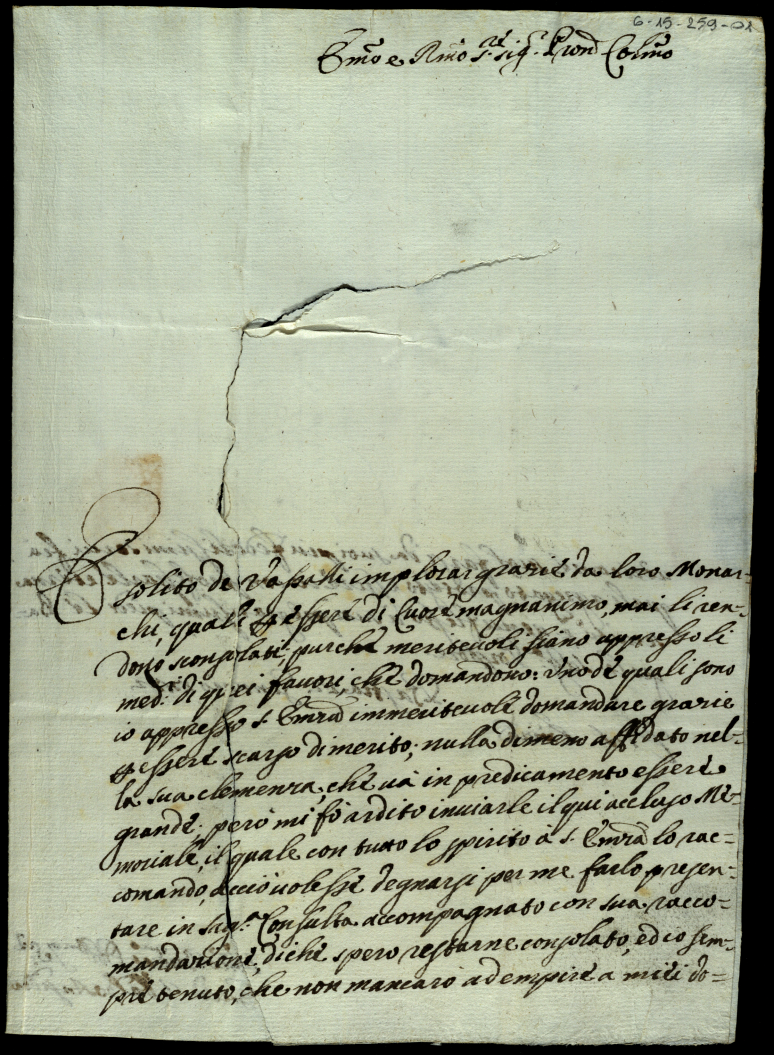 6-15-259-01
Emo e Rmo Sre sigr Pron Colmo
Solito de Vassalli implorar grazie da loro Monar-
chi, quali p essere di Cuore magnanimo, mai li ren-
dono sconsolati, purche meritevoli siano appresso li
med: di quei favori, che domandono: Uno de quali sono
io appresso S. Emza immeritevole domandare grazie
p essere scarso di merito; nulla di meno affidato nel-
la sua clemenza, che và in predicamento essere
grande, però mi fò ardito inviarle il qui accluso Me-
moriale, il quale con tutto lo spirito a S. Emza lo rac-
comando, acciò volesse degnarsi per me farlo presen-
tare in Sagra Consulta accompagnato con sua racco-
mandazione, di che spero restarne consolato, ed io sem-
pre tenuto, che non mancarò adempire a miei do-